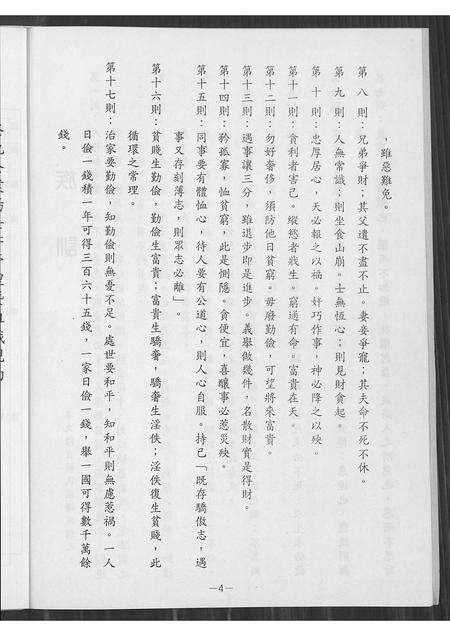 ，雖惡難免。
第八則：兄弟爭財；其父遺不盡不止。妻妾爭寵；其夫命不死不休。
第九則：人無常識；則坐食山崩。士無恆心；則見財貪起。
第十則：忠厚居心，天必報之以福。奸巧作事，神必降之以殃。
第十一則：貪利者害己。縱慾者戕生。窮通有命。富貴在天。
第十二則：勿好奢侈，須防他日貧窮。毋廢勤儉，可望將來富貴。
第十三則：遇事讓三分，雖退步即是進步。義舉做幾件，名散財實是得財。
第十四則：矜孤寡，恤貧窮，此是惻隱。貪便宜，喜釀事必惹災殃。
第十五則：同事要有體恤心，待人要有公道心，則人心自服。持己「既存驕傲志，遇
事又存刻薄志，則眾志必離」。
第十六則：貧賤生勤儉，勤儉生富貴；富貴生驕奢，驕奢生淫佚；淫佚復生貧賤，此
循環之常理。
第十七則：治家要勤儉，知勤儉則無憂不足。處世要和平，知和平則無慮惹禍。一人
日儉一錢積一年可得三百六十五錢，一家日儉一錢，舉一國可得數千萬餘
錢。
—4—